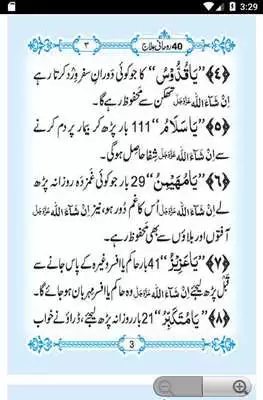 3:29
۳
40 روحانی علاج
﴿۴﴾ ”یَاقُدُّوْسُ“ کا جو کوئی دورانِ سفر وِرد کرتا رہے
اِنْ شَآءَ اللّٰہ عَزَّوَجَلَّ تھکن سے محفوظ رہے گا۔
﴿۵﴾ ”یَاسَلَامُ“ 111 بار پڑھ کر بیمار پر دم کرنے
سے اِنْ شَآءَ اللّٰہ عَزَّوَجَلَّ شِفا حاصِل ہوگی۔
﴿۶﴾ ”یَامُھَیْمِنُ“ 29 بار جو کوئی غمزدہ روزانہ پڑھ
لے اِنْ شَآءَ اللّٰہ عَزَّوَجَلَّ اُس کا غم دُور ہو، نیز اِنْ شَآءَ اللّٰہ عَزَّوَجَلَّ
آفتوں اور بلاؤں سے بھی محفوظ رہے۔
﴿۷﴾ ”یَاعَزِیْزُ“ 41 بار حاکم یا افسر وغیرہ کے پاس جانے سے
قَبْل پڑھ لیجئے اِنْ شَآءَ اللّٰہ عَزَّوَجَلَّ وہ حاکم یا افسر مہربان ہو جائے گا۔
﴿۸﴾ ”یَامُتَکَبِّرُ“ 21 بار روزانہ پڑھ لیجئے، ڈراؤنے خواب
3